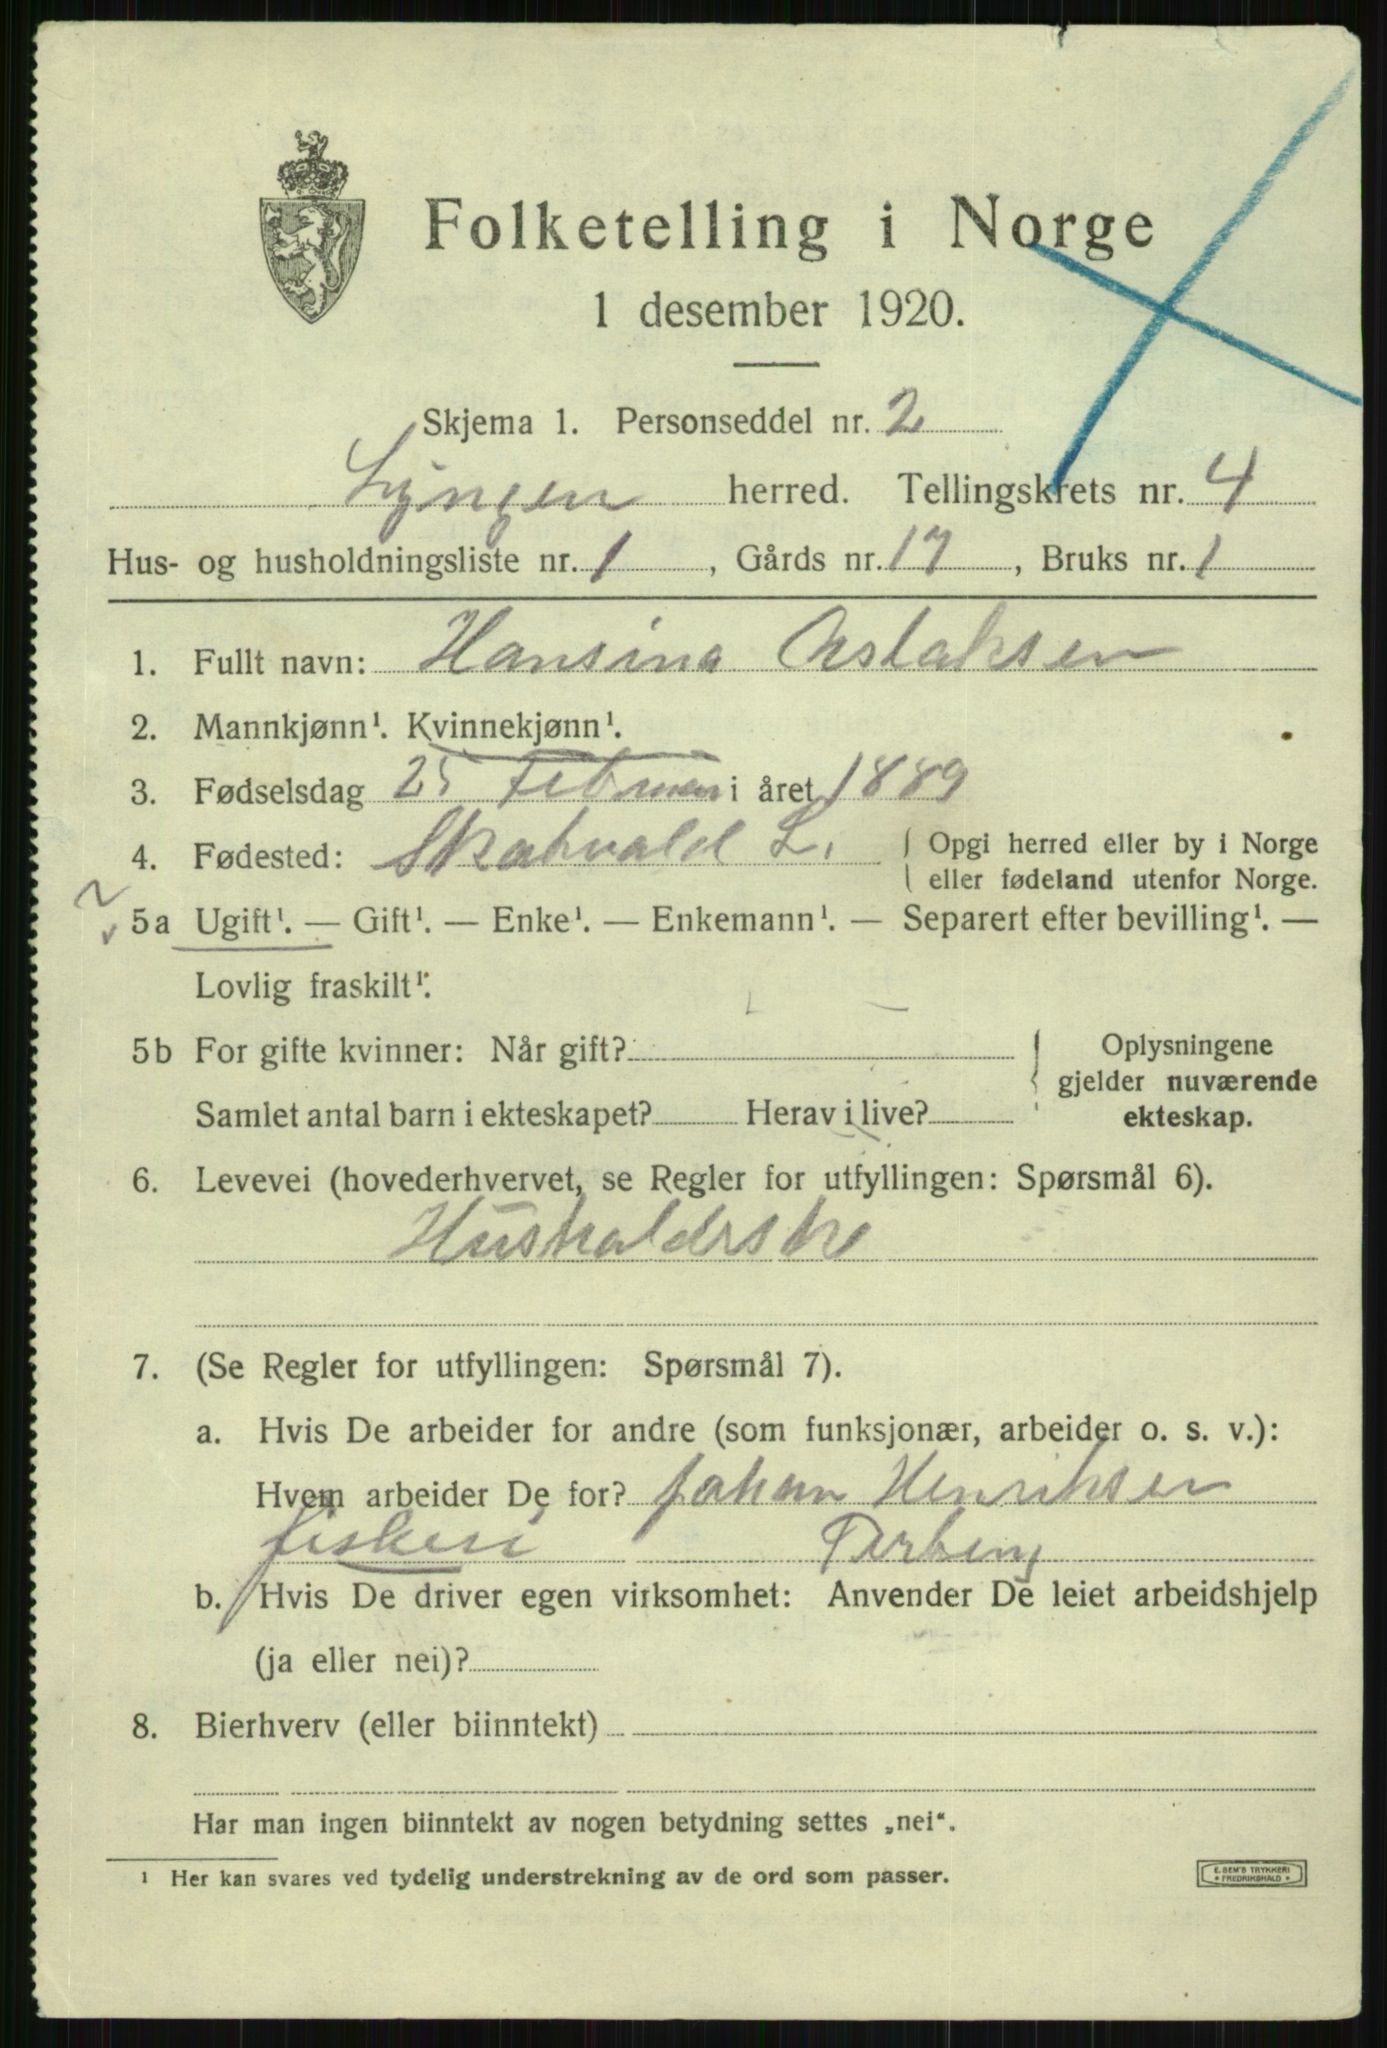 Folketelling i Norge
1 desember 1920.
Skjema 1. Personseddel nr. 2
Lyngen herred. Tellingskrets nr. 4
Hus- og husholdningsliste nr. 1, Gårds nr. 17, Bruks nr. 1
1. Fullt navn: Hansina Aslaksen
2. Mannkjønn¹. Kvinnekjønn¹.
3. Fødselsdag 25 Februar i året 1889
4. Fødested: L. { Opgi herred eller by i Norge
eller fødeland utenfor Norge.
5a Ugift¹. — Gift¹. — Enke¹. — Enkemann¹. — Separert efter bevilling¹. —
Lovlig fraskilt¹.
5b For gifte kvinner: Når gift? { Oplysningene
gjelder nuværende
Samlet antal barn i ekteskapet? Herav i live? ekteskap.
6. Levevei (hovederhvervet, se Regler for utfyllingen: Spørsmål 6).
Husholderske
7. (Se Regler for utfyllingen: Spørsmål 7).
a. Hvis De arbeider for andre (som funksjonær, arbeider o. s. v.):
Hvem arbeider De for? Johan Henriksen
fiskeri
b. Hvis De driver egen virksomhet: Anvender De leiet arbeidshjelp
(ja eller nei)?
8. Bierhverv (eller biinntekt)
Har man ingen biinntekt av nogen betydning settes „nei".
¹ Her kan svares ved tydelig understrekning av de ord som passer.
E. SEM'S TRYKKERI
* FREDRIKSHALD *